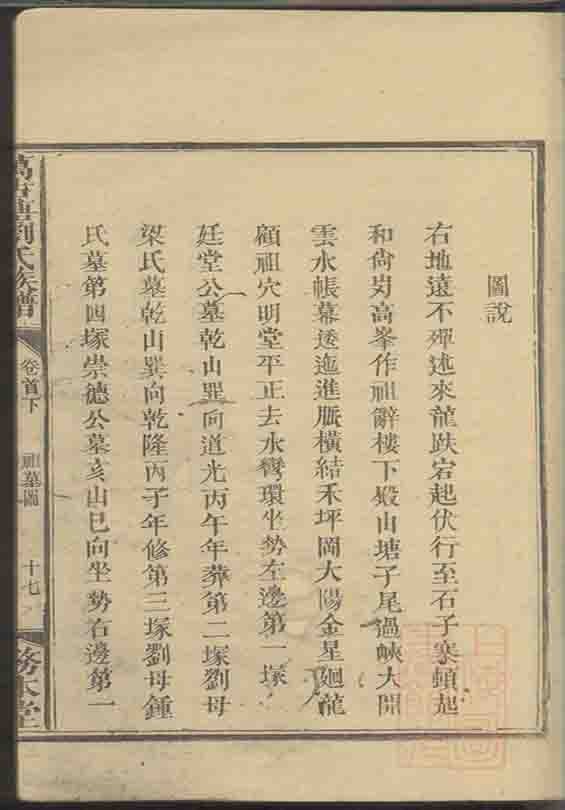 圖說
右地遠不殫述來龍跌宕起伏行至石子寨頓起
和尙岃高峯作祖辭樓下殿山塘子尾過峽大開
雲水帳幕逶迤進脈橫結禾坪岡大陽金星廻龍
顧祖穴明堂平正去水彎環坐勢左邊第一塚
廷堂公墓乾山巽向道光丙午年葬第二塚劉母
梁氏墓乾山巽向乾隆丙子年修第三塚劉母鍾
氏墓第四塚崇德公墓亥山巳向坐勢右邊第一
劉氏族譜
卷首下
祖墓圖
十七
務本堂